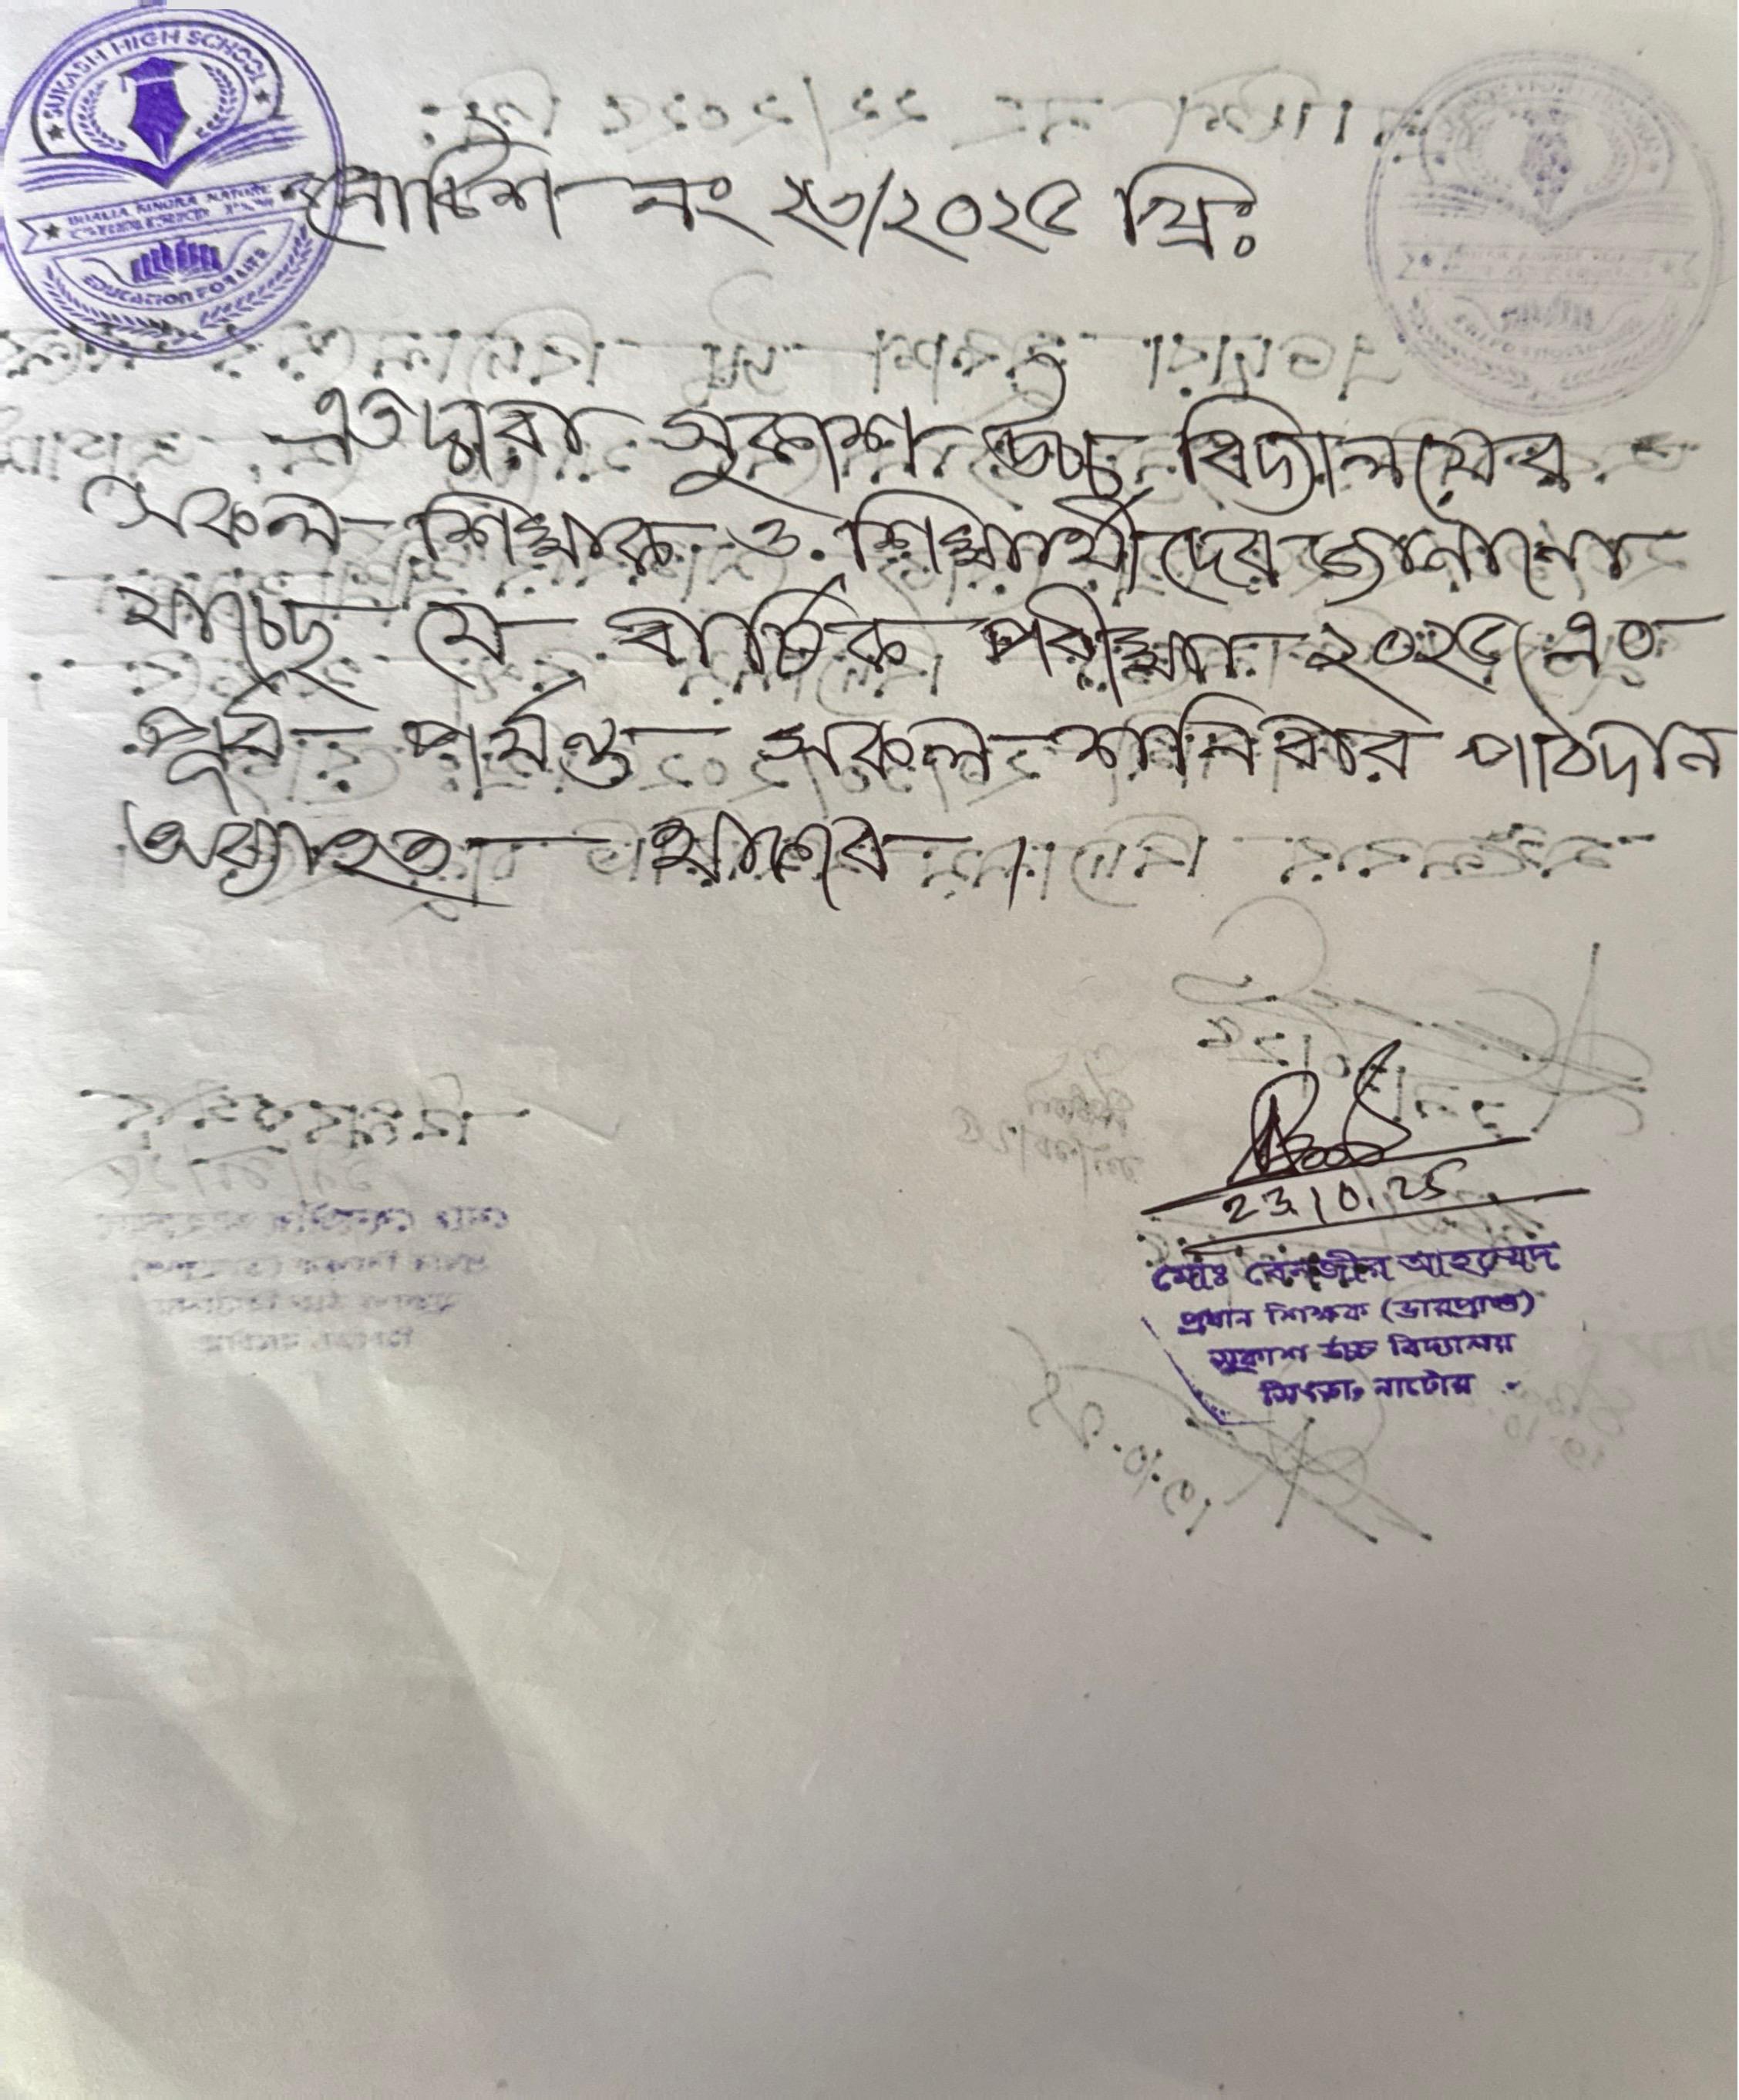 SUKASH HIGH SCHOOL
EDUCATION FOR LIFE
নোটিশ নং ২৩/২০২৫ খ্রিঃ
এতদ্বারা সুকাশ উচ্চ বিদ্যালয়ের
সকল শিক্ষক ও শিক্ষার্থীদের জানানো
যাচ্ছে যে বার্ষিক পরীক্ষা ২০২৫ এর
পূর্ব পর্যন্ত সকল শনিবার পাঠদান
অব্যাহত থাকবে।
23.10.25
মোঃ বেনজীর আহম্মেদ
প্রধান শিক্ষক (ভারপ্রাপ্ত)
সুকাশ উচ্চ বিদ্যালয়
সিংড়া, নাটোর